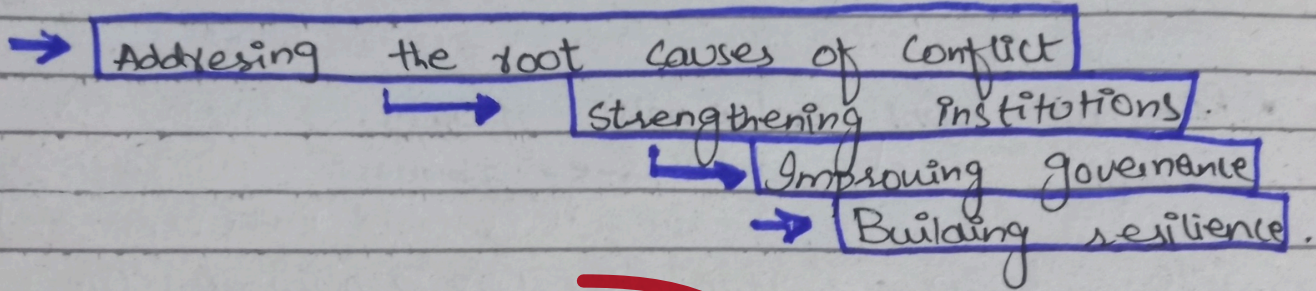 Addresing the root causes of conflict
Strengthening institutions.
Improving governance
Building resilience.